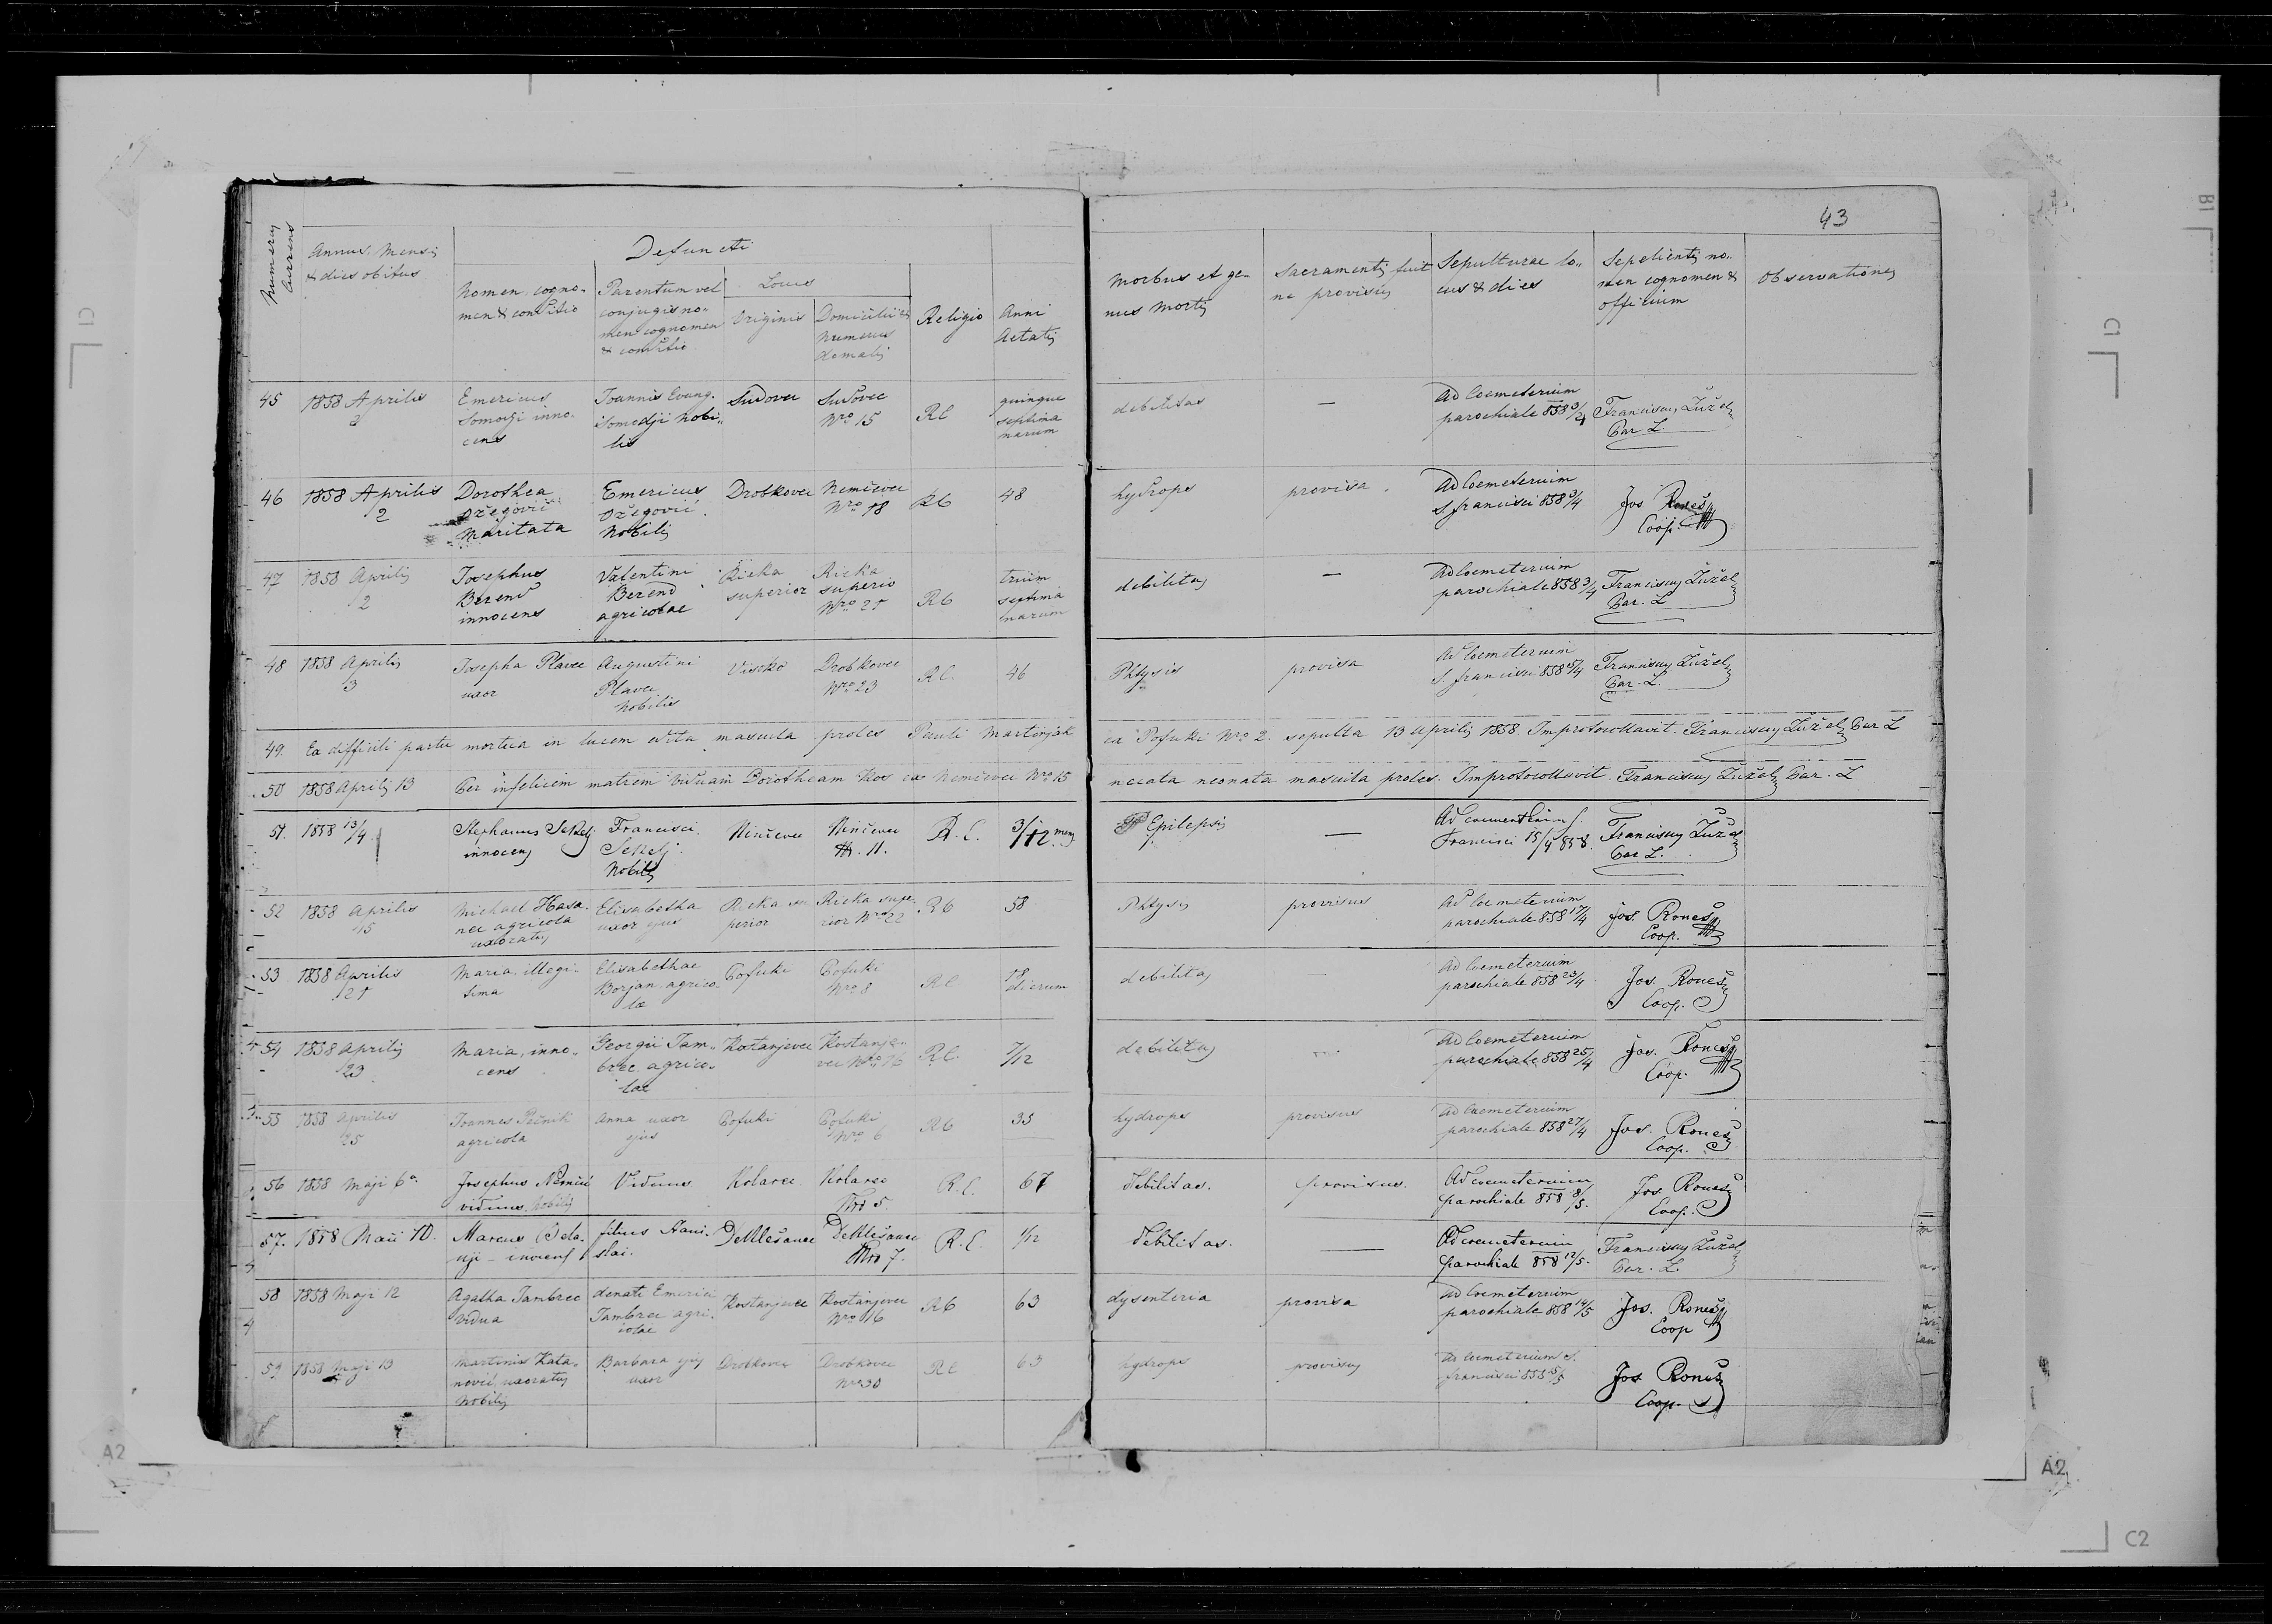 43
Numerus currens
Annus, Mensis & dies obitus
Defuncti
Nomen, cognomen & conditio
Parentum vel conjugis nomen cognomen & conditio
Locus
Originis
Domicilii & Numerus domalis
Religio
Anni Aetatis
Morbus et genus Mortis
Sacramentis fuit ne provisus
Sepulturae locus & dies
Sepelientis nomen cognomen & officium
Observationes
45 1858 Aprilis Emericus Somodji innocens Joannis Evang. Somodji Nobilis Sudovec Sudovec Nro 15 RC quinque septimanarum debilitas — Ad Coemeterium parochiale 858 3/4 Franciscus Žužel Par. L.
46 1858 Aprilis 2 Dorothea Ožegović Maritata Emericus Ožegović Nobilis Drobkovec Nemčevec Nro 18 RC 48 hydrops provisa Ad Coemeterium S. francisci 858 3/4 Jos Roneš Coop.
47 1858 Aprilis 2 Josephus Berend innocens Valentini Berend agricolae Rieka superior Rieka superio Nro 21 RC trium septimanarum debilitas — Ad Coemeterium parochiale 858 3/4 Franciscus Žužel Par. L
48 1858 Aprilis 3 Josepha Plavec uxor Augustini Plavec Nobilis Visoko Drobkovec Nro 23 RC. 46 Phtysis provisa Ad Coemeterium S. francisci 858 5/4 Franciscus Žužel Par. L.
49. Ex difficili partu mortua in lucem edita mascula proles Pauli Martinjak ex Pofuki Nro 2. sepulta 13 Aprilis 1858. Improtocollavit. Franciscus Žužel Par L
50 1858 Aprilis 13 Per infelicem matrem viduam Dorotheam Kos ex Nemčevec Nro 15 necata neonata mascula proles. Improtocollavit. Franciscus Žužel Par. L
51. 1858 13/4 Stephanus Sekelj innocens Francisci Sekelj Nobilis Ninčevec Ninčevec N. 11. R. C. 3/12 mens Epilepsis — Ad coementerium S. Francisci 15/4 858. Franciscus Žužel Par L.
52 1858 Aprilis 15 Michael Hasanec agricola uxoratus Elisabetha uxor ejus Rieka superior Rieka superior Nro 22 RC 58 Phtysis provisus Ad Coemeterium parochiale 858 17/4 Jos. Roneš Coop.
53 1858 Aprilis 21 Maria, illegitima Elisabethae Borjan agricolae Pofuki Pofuki Nro 8 RC 18 dierum debilitas — Ad Coemeterium parochiale 858 23/4 Jos. Roneš Coop.
54 1858 Aprilis 23 Maria, innocens Georgii Tambrec agricolae Kostanjevec Kostanjevec Nro 16 RC. 7/12 debilitas — Ad Coemeterium parochiale 858 25/4 Jos. Roneš Coop.
55 1858 Aprilis 25 Joannes Pečnik agricola Anna uxor ejus Pofuki Pofuki Nro 6 RC 35 hydrops provisus Ad Coemeterium parochiale 858 27/4 Jos. Roneš Coop.
56 1858 Maji 6a Josephus Nemčić viduus, Nobilis Viduus Kolarec Kolarec Nro 5. R. C. 67 Debilitas. provisus. Ad coemeterium parochiale 858 8/5. Jos. Roneš Coop.
57. 1858 Maii 10. Marcus filius Stanislai. Nro 7. R. C. 1/12 Debilitas. — Ad coemeterium parochiale 858 12/5. Franciscus Žužel Par. L.
58 1858 Maji 12 Agatha Tambrec vidua denati Emerici Tambrec agricolae Kostanjevec Kostanjevec Nro 16 RC 63 dysenteria provisa Ad Coemeterium parochiale 858 14/5 Jos. Roneš Coop
59 1858 Maji 13 Martinus Katanović uxoratus Nobilis Barbara ejus uxor Drobkovec Drobkovec Nro 30 RC 63 hydrops provisus Ad Coemeterium S. francisci 858 15/5 Jos Roneš Coop.
C1
B1
C1
A2
A2
C2